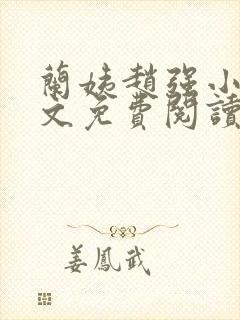 蘭姨趙強小
文免費閱讀
姜鳳武